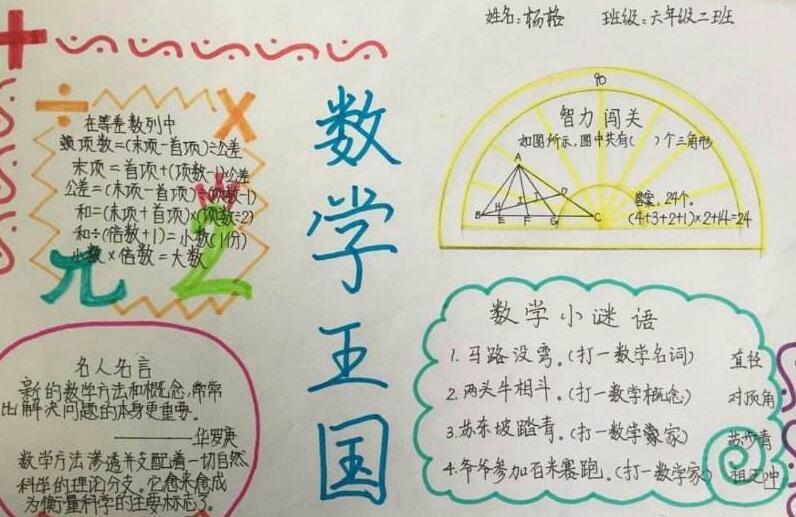 姓名:杨格 班级:六年级二班
+
÷ ×
在等差数列中
项数=(末项-首项)÷公差
末项=首项+(项数-1)公差
公差=(末项-首项)÷(项数-1)
和=(末项+首项)×(项数÷2)
和÷(倍数+1)=小数(1份)
小数×倍数=大数
π 2
名人名言
新的数学方法和概念,常常
出解决问题的本身更重要。
——华罗庚
数学方法渗透并支配着一切自然
科学的理论分支。它愈来愈成
为衡量科学的主要标志了。
数学王国
90
智力闯关
如图所示,图中共有( )个三角形
A
B E F G C
H I J D
答案:24个。
(4+3+2+1)×2+4=24
数学小谜语
1.马路没弯。(打一数学名词) 直径
2.两头牛相斗。(打一数学概念) 对顶角
3.苏东坡踏青。(打一数学家) 苏步青
4.爷爷参加百米赛跑。(打一数学家) 祖冲